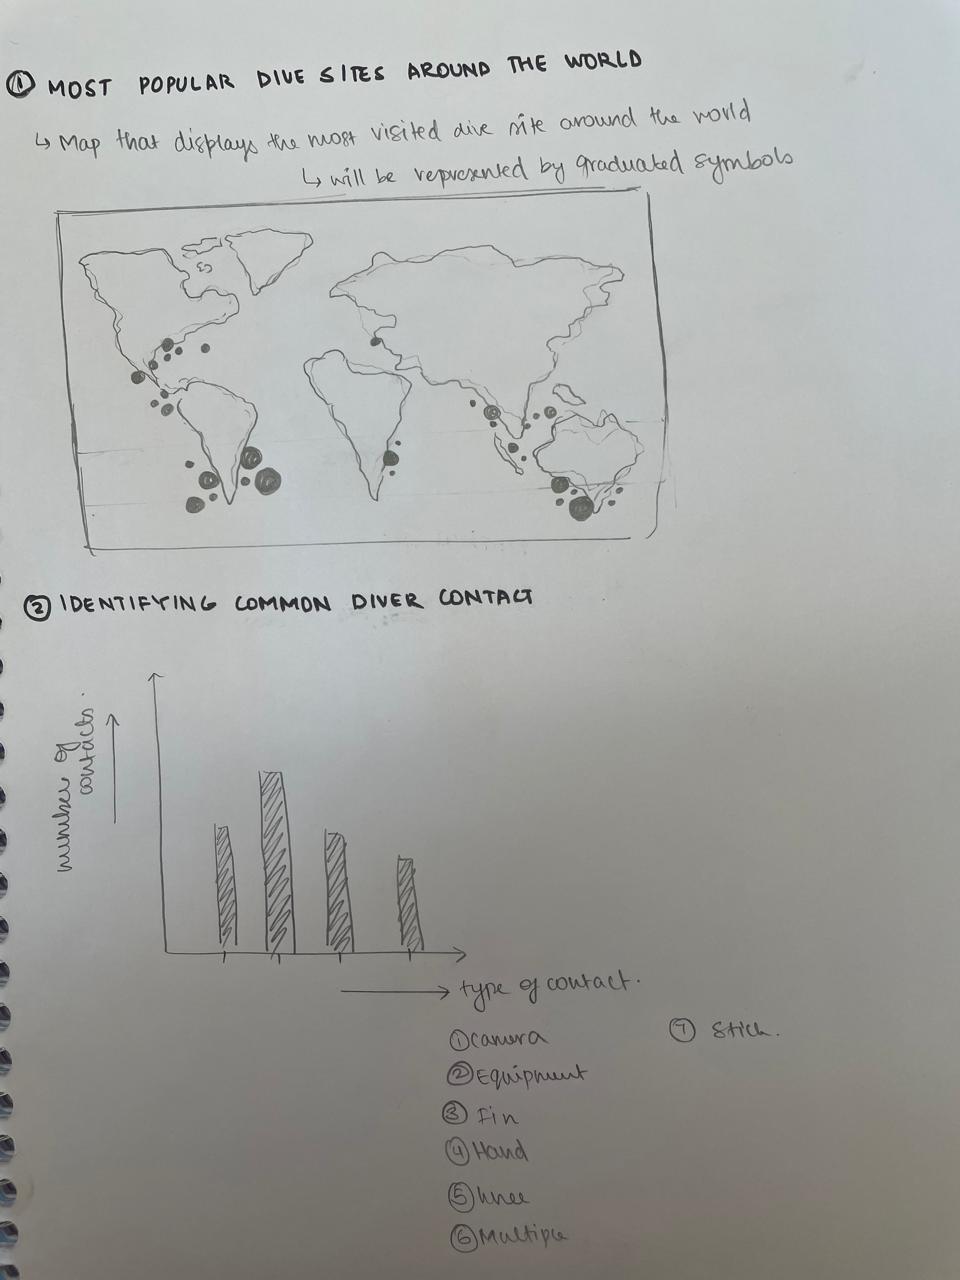 ① MOST POPULAR DIVE SITES AROUND THE WORLD
↳ Map that displays the most visited dive site around the world
↳ will be represented by graduated symbols
② IDENTIFYING COMMON DIVER CONTACT
number of
contacts.
type of contact.
① Camera
② Equipment
③ Fin
④ Hand
⑤ knee
⑥ Multiple
⑦ Stick.